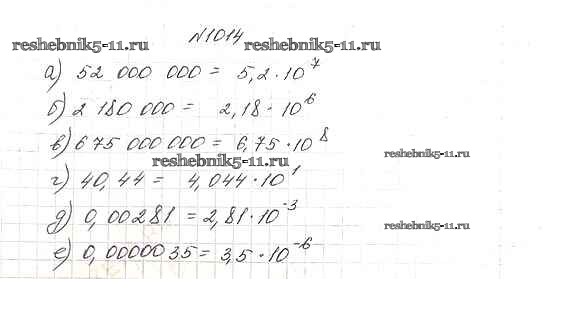 №1014
reshebnik5-11.ru reshebnik5-11.ru
а) 52 000 000 = 5,2 · 10⁷
б) 2 180 000 = 2,18 · 10⁶
в) 675 000 000 = 6,75 · 10⁸
reshebnik5-11.ru reshebnik5-11.ru
г) 40,44 = 4,044 · 10¹
д) 0,00281 = 2,81 · 10⁻³
reshebnik5-11.ru
е) 0,0000035 = 3,5 · 10⁻⁶